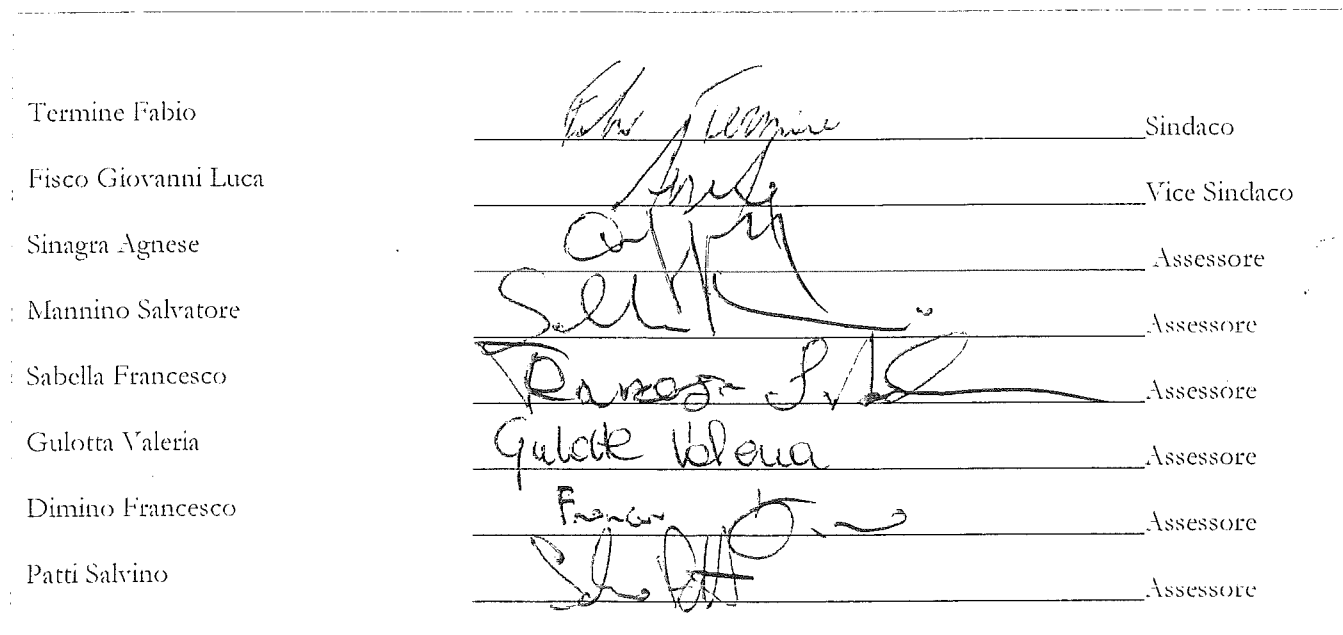 Termine Fabio Fabio Termine Sindaco
Fisco Giovanni Luca Vice Sindaco
Sinagra Agnese Assessore
Mannino Salvatore Assessore
Sabella Francesco Francesco Assessore
Gulotta Valeria Gulotta Valeria Assessore
Dimino Francesco Assessore
Patti Salvino Patti Assessore